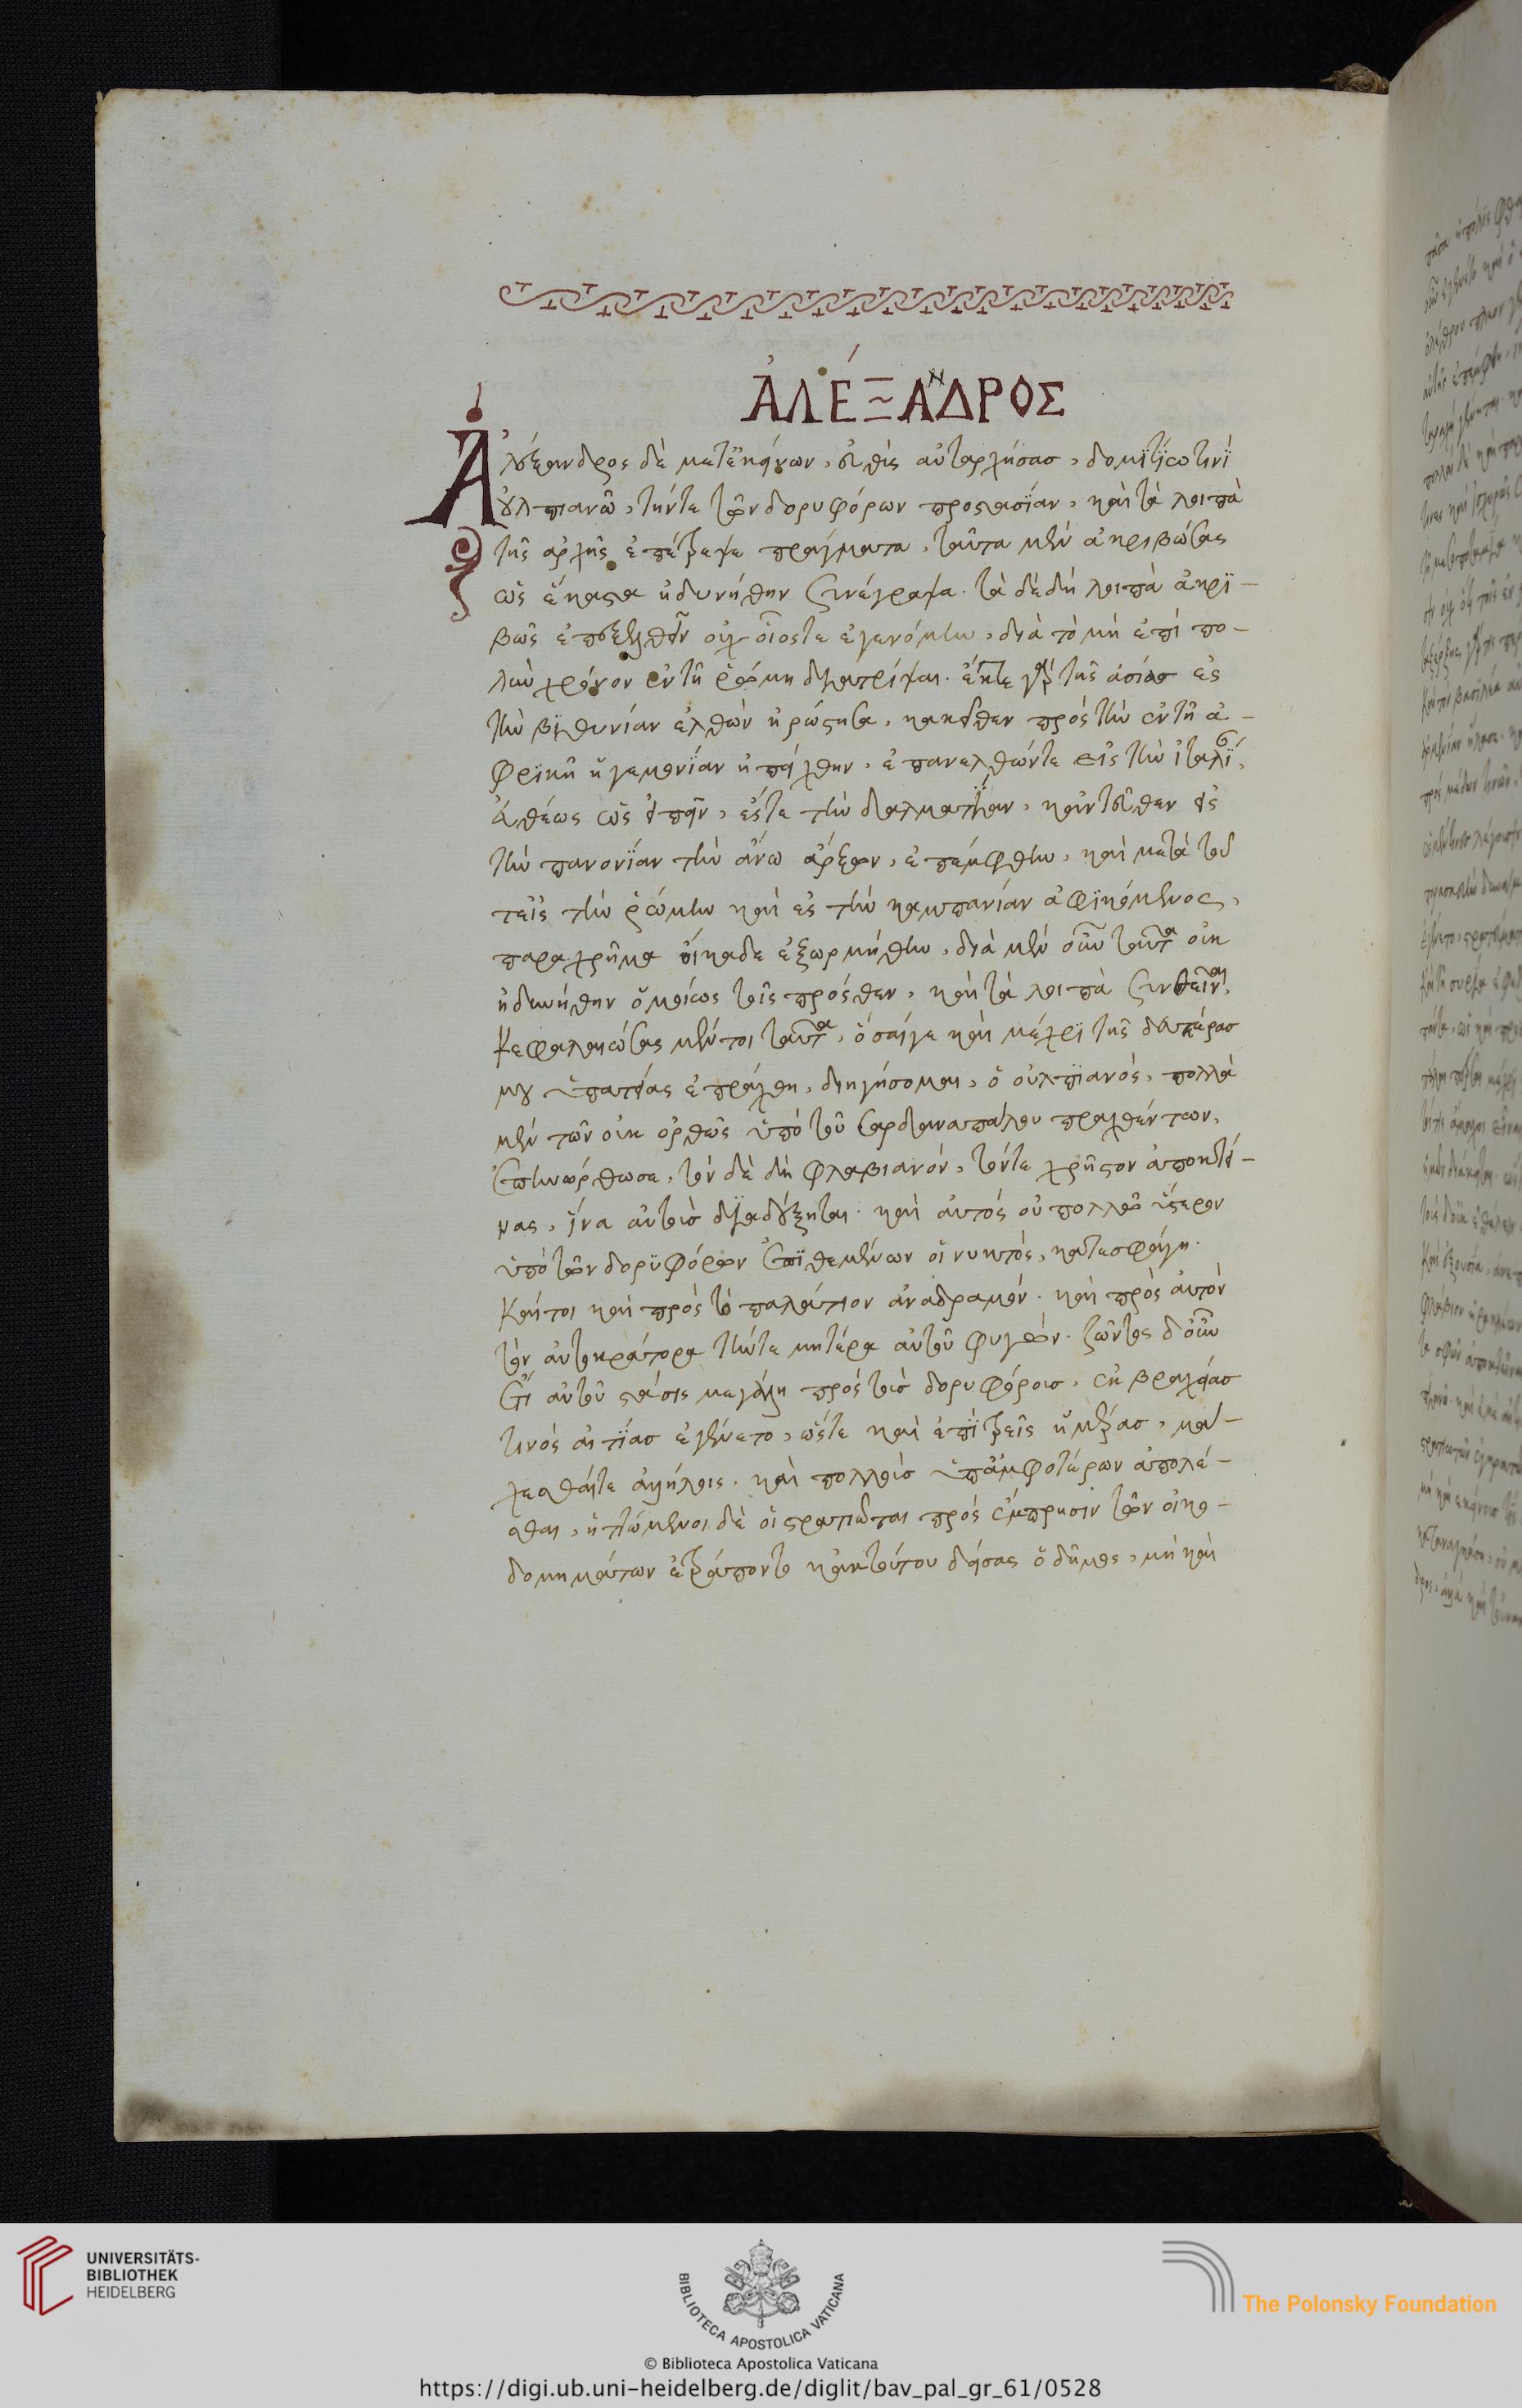 ἈΛΈΞΑΝΔΡΟΣ
Ἀλέξανδρος δὲ μετ' ἐκεῖνον, εὐθὺς αὐταρχήσας, δομιτίω τινὶ
οὐλπιανῶ, τήν τε τῶν δορυφόρων προστασίαν, καὶ τὰ λοιπὰ
τῆς ἀρχῆς ἐπέτρεψε πράγματα, ταῦτα μὲν ἀκριβώσας
ὡς ἕκαστα ἠδυνήθην συνέγραψα. τὰ δὲ δὴ λοιπὰ ἀκρι-
βῶς ἐπεξελθεῖν οὐχ οἷός τε ἐγενόμην, διὰ τὸ μὴ ἐπὶ πο-
λὺν χρόνον ἐν τῆ ῥώμη διατρίψαι. ἔκ τε γὰρ τῆς ἀσίας ἐς
τὴν βιθυνίαν ἐλθὼν ἠρώστησα, κακεῖθεν πρὸς τὴν ἐν τῆ ἀ-
φρικῆ ἡγεμονίαν ἠπείχθην, ἐπανελθών τε εἰς τὴν ἰταλί,
εὐθέως ὡς εἰπεῖν, ἔς τε τὴν δαλματίαν, κἀντεῦθεν εἰς
τὴν πανονίαν τὴν ἄνω ἄρξων, ἐπέμφθην, καὶ μετὰ τοῦ
τ' εἰς τὴν ῥώμην καὶ ἐς τὴν καμπανίαν ἀφικόμενος,
παραχρῆμα οἴκαδε ἐξωρμήθην, διὰ μὲν οὖν ταῦτα οὐκ
ἠδυνήθην ὁμοίως τοῖς πρόσθεν, καὶ τὰ λοιπὰ συνθεῖναι,
κεφαλαιώσας μέντοι ταῦτα, ὅσα γε καὶ μέχρι τῆς δευτέρας
μου ὑπατείας ἐπράχθη, διηγήσομαι, ὁ οὐλπιανός, πολλὰ
μὲν τῶν οὐκ ὀρθῶς ὑπὸ τοῦ σαρδαναπάλου πραχθέντων,
ἐπηνώρθωσε, τὸν δὲ δὴ φλαβιανόν, τόν τε χρῆστον ἀποκτεί-
νας, ἵνα αὐτοὺς διαδέξηται. καὶ αὐτὸς οὐ πολλῶ ὕστερον
ὑπὸ τῶν δορυφόρων ἐπιθεμένων οἱ νυκτός, κατεσφάγη.
καίτοι καὶ πρὸς τὸ παλάτιον ἀναδραμών. καὶ πρὸς αὐτὸν
τὸν αὐτοκράτορα τήν τε μητέρα αὐτοῦ φυγών. ζῶντος δ' οὖν
ἔτι αὐτοῦ στάσις μεγάλη πρὸς τοὺς δορυφόρους, ἐκ βραχείας
τινὸς αἰτίας ἐγένετο, ὥστε καὶ ἐπὶ τρεῖς ἡμέρας, μά-
χεσθαί τε ἀλλήλοις. καὶ πολλοὺς ὑπ' ἀμφοτέρων ἀπολέ-
σθαι, ἡττώμενοι δὲ οἱ στρατιῶται πρὸς ἔμπρησιν τῶν οἰκο-
δομημάτων ἐτράποντο κἀκ τούτου δείσας ὁ δῆμος, μὴ καὶ
UNIVERSITÄTS-
BIBLIOTHEK
HEIDELBERG
BIBLIOTECA APOSTOLICA VATICANA
The Polonsky Foundation
© Biblioteca Apostolica Vaticana
https://digi.ub.uni-heidelberg.de/diglit/bav_pal_gr_61/0528